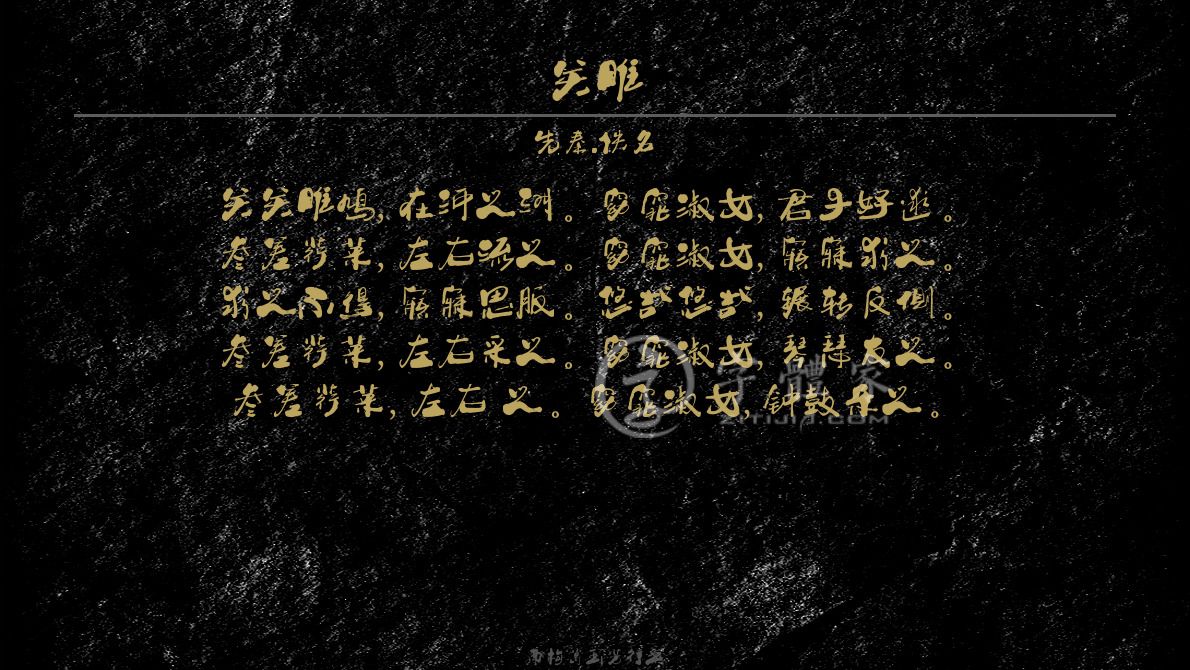 关雎
先秦.佚名
关关雎鸠,在河之洲。窈窕淑女,君子好逑。
参差荇菜,左右流之。窈窕淑女,寤寐求之。
求之不得,寤寐思服。悠哉悠哉,辗转反侧。
参差荇菜,左右采之。窈窕淑女,琴瑟友之。
参差荇菜,左右 之。窈窕淑女,钟鼓乐之。
字體家
ZITIJIA.COM